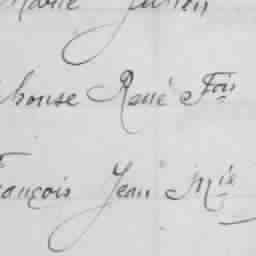 Marie Julien
phonse René Fois
rançois Jean Mie